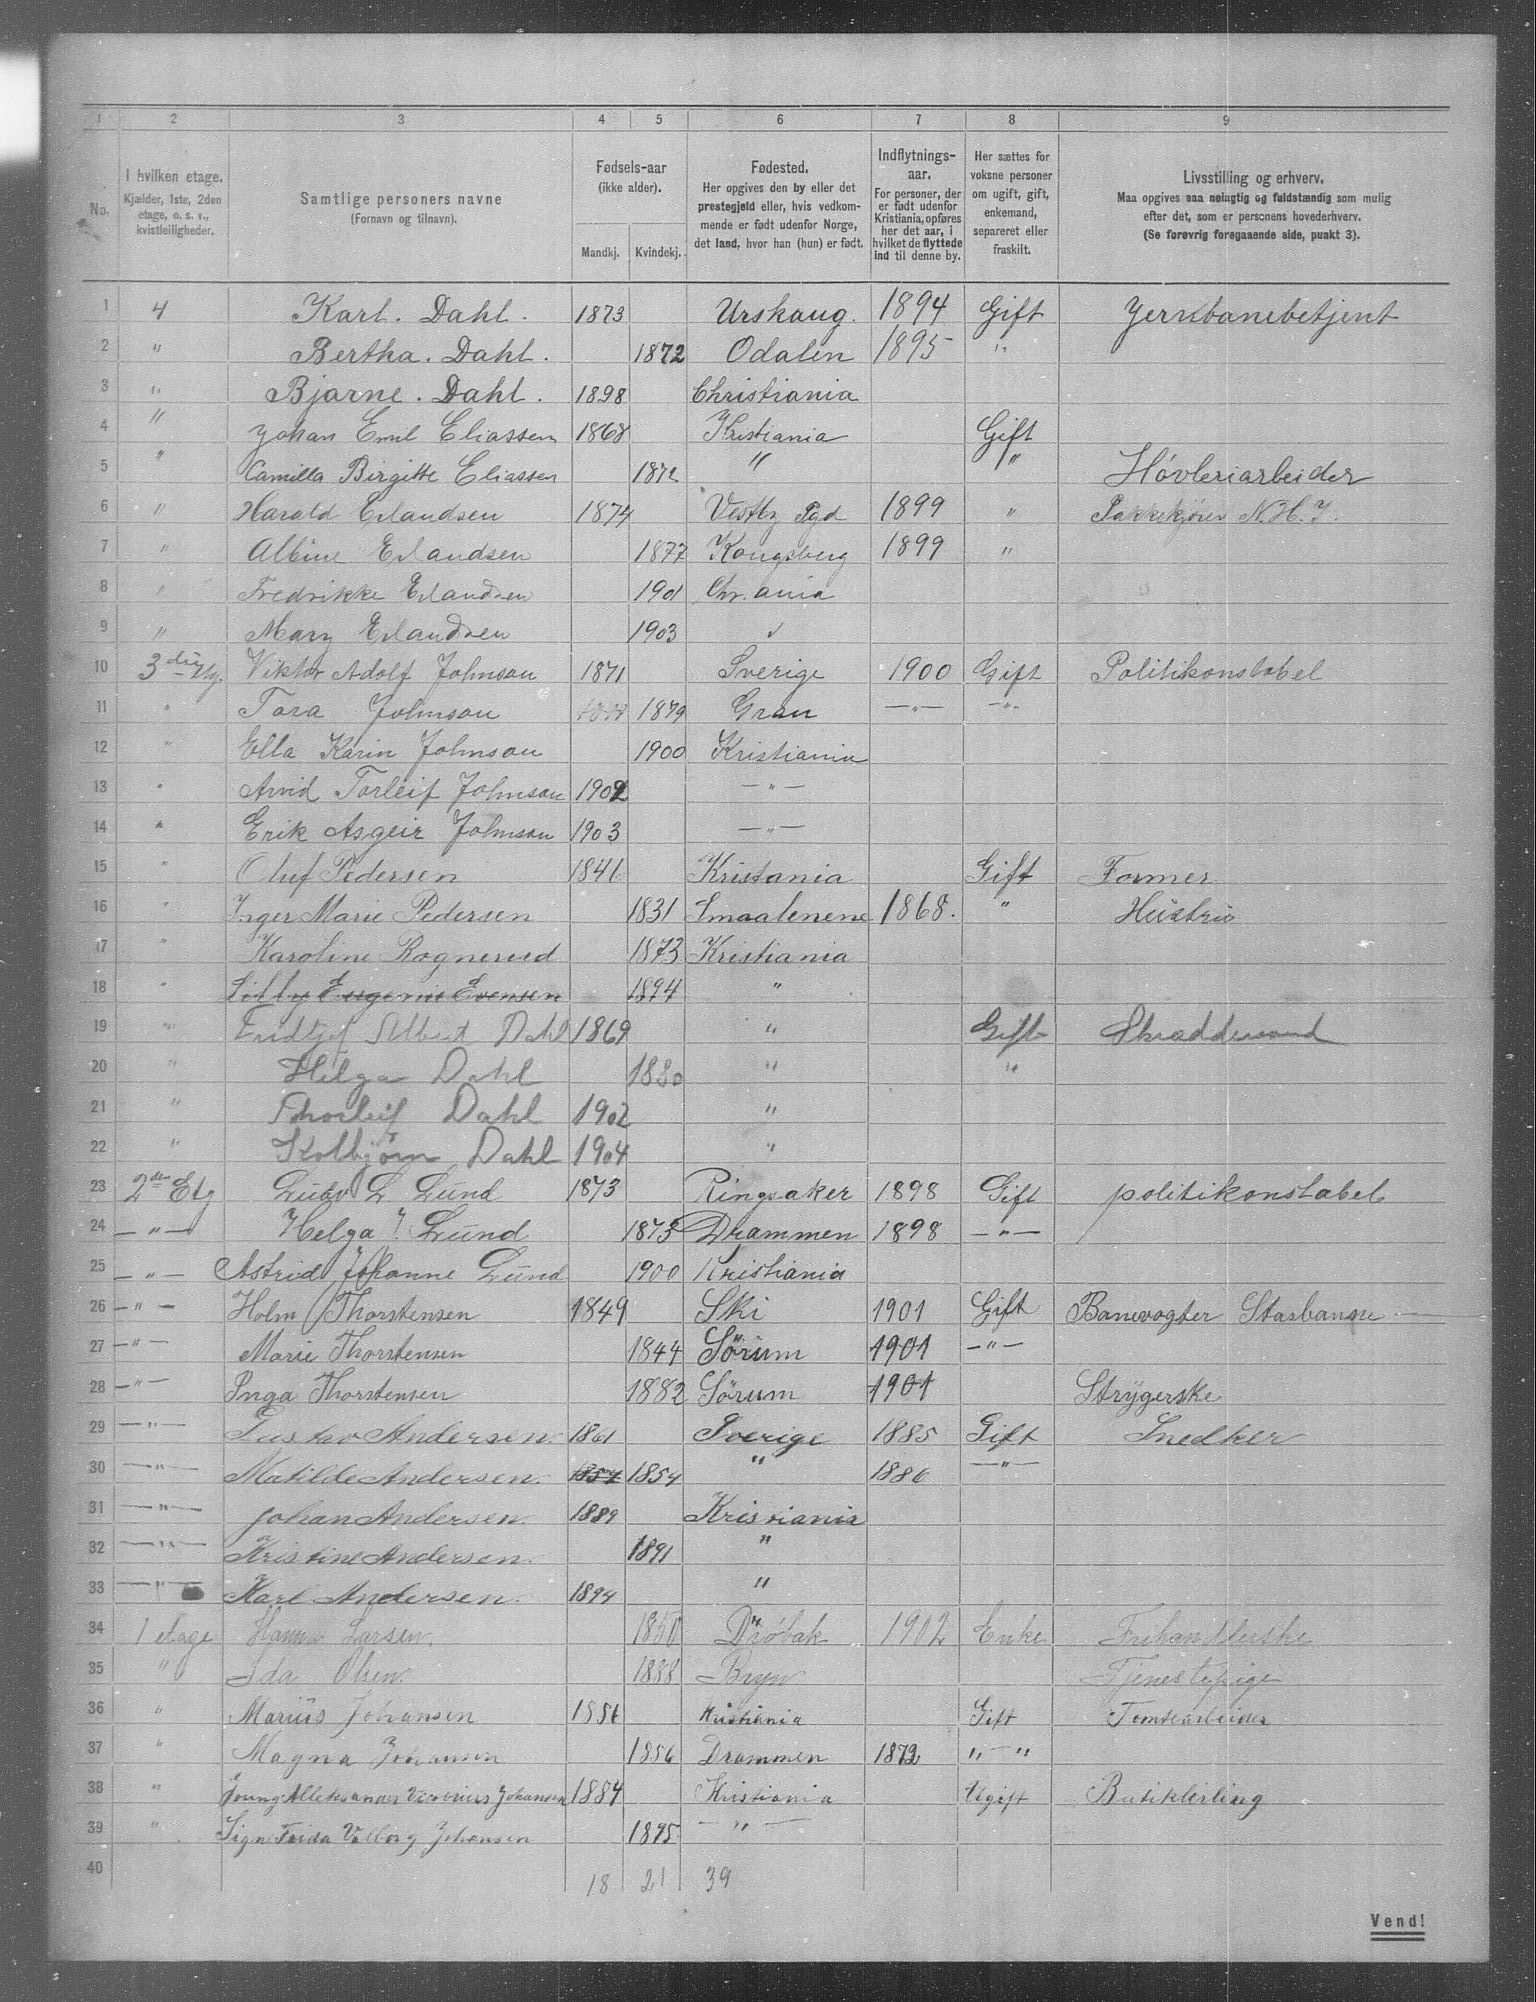 1 2 3 4 5 6 7 8 9
No.
I hvilken etage.
Kjælder, 1ste, 2den
etage, o. s. v.,
kvistleiligheder.
Samtlige personers navne
(Fornavn og tilnavn).
Fødsels-aar
(ikke alder).
Mandkj. Kvindekj.
Fødested.
Her opgives den by eller det
prestegjeld eller, hvis vedkom-
mende er født udenfor Norge,
det land, hvor han (hun) er født.
Indflytnings-
aar.
For personer, der
er født udenfor
Kristiania, opføres
her det aar, i
hvilket de flyttede
ind til denne by.
Her sættes for
voksne personer
om ugift, gift,
enkemand,
separeret eller
fraskilt.
Livsstilling og erhverv.
Maa opgives saa nøiagtig og fuldstændig som mulig
efter det, som er personens hovederhverv.
(Se forøvrig foregaaende side, punkt 3).
1 4 Karl. Dahl. 1873 Urskoug. 1894 Gift Jernbanebetjent
2 " Bertha. Dahl. 1872 Odalen 1895 "
3 " Bjarne. Dahl. 1898 Christiania
4 " Johan Emil Eliassen 1868 Kristiania Gift
5 " Camilla Birgitte Eliassen 1872 " " Høvleriarbeider
6 " Harald Erlandsen 1874 Vestby Pgd 1899 " N.H.J.
7 " Albine Erlandsen 1877 Kongsberg 1899 "
8 " Fredrikke Erlandsen 1901 Chr.ania
9 " Mary Erlandsen 1903 "
10 3die etg. Viktor Adolf Johnson 1871 Sverige 1900 Gift Politikonstabel
11 " Tora Johnson 1879 Gran —"— —"—
12 " Ella Karin Johnson 1900 Kristiania
13 " Arvid Torleif Johnson 1902 —"—
14 " Erik Asgeir Johnson 1903 —"—
15 " Oluf Pedersen 1846 Kristania Gift Former
16 " Inger Marie Pedersen 1831 Smaalenene 1868. " Hustru
17 " Karoline Rognerud 1873 Kristiania
18 " Eugenie Evensen 1894 "
19 " Fridtjof Albert Dahl 1869 " Gift Skræddersvend
20 " Helga Dahl 1880 " "
21 " Thorleif Dahl 1902 "
22 " Kolbjørn Dahl 1904 "
23 2den Etg Ludv L Lund 1873 Ringsaker 1898 Gift politikonstabel
24 —"— Helga J. Lund 1873 Drammen 1898 —"—
25 —"— Astrid Johanne Lund 1900 Kristiania
26 —"— Holm Thorstensen 1849 Ski 1901 Gift Banevogter Stasbanene
27 —"— Marie Thorstensen 1844 Sørum 1901 —"—
28 —"— Inga Thorstensen 1882 Sørum 1901 Strygerske
29 —"— Gustav Andersen. 1861 Sverige 1885 Gift Snedker
30 —"— Matilde Andersen. 1854 1854 " 1886 —"—
31 —"— Johan Andersen. 1889 Kristiania
32 —"— Kristine Andersen. 1891 "
33 —"— Karl Andersen. 1894 "
34 1 etage Hanna Larsen. 1850 Drøbak 1902 Enke Frihandlerske
35 " Ida Olsen. 1888 Bryn Tjenestepige
36 " Marius Johansen 1856 Kristiania Gift Tomtearbeider
37 " Magna Johansen 1856 Drammen 1872 "—"
38 " Johansen 1884 Kristiania Ugift Butiklerling
39 " Frida Valborg Johansen 1895 —"—
40 18 21 39
Vend!